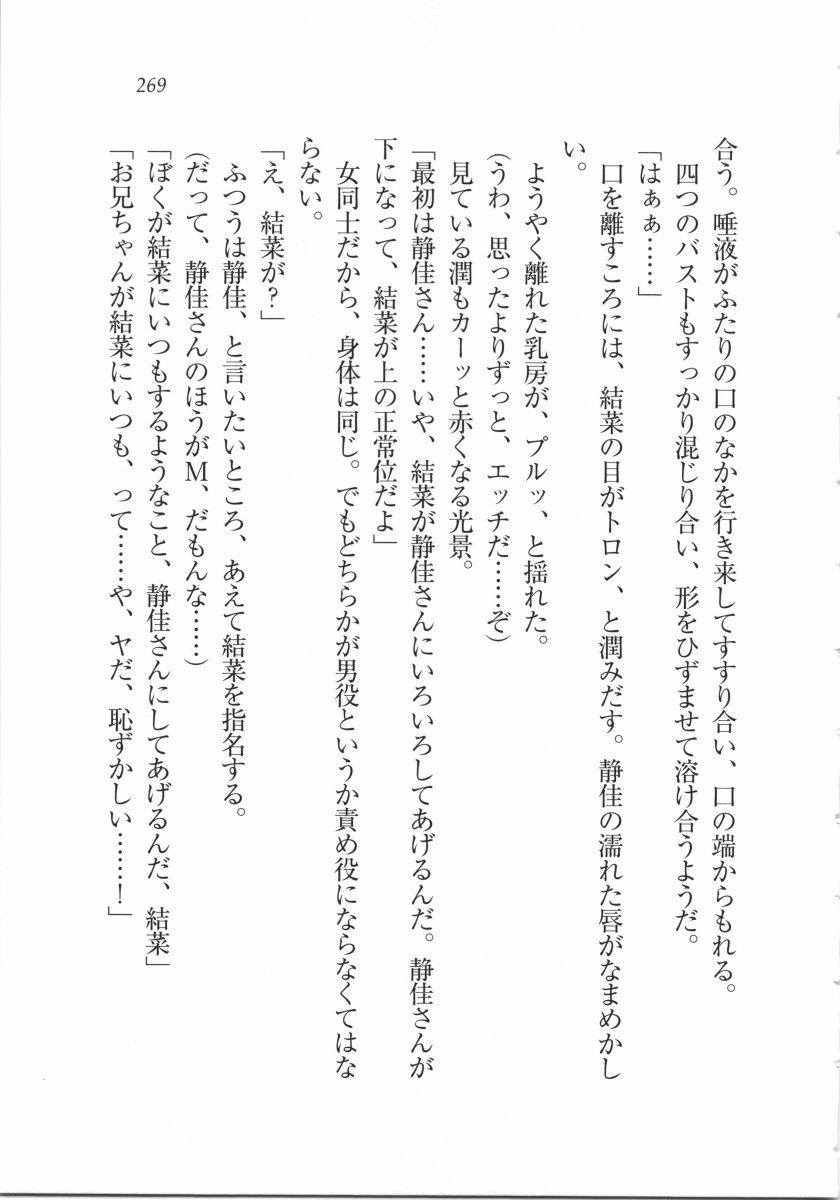 269
合う。唾液がふたりの口のなかを行き来してすすり合い、口の端からもれる。
四つのバストもすっかり混じり合い、形をひずませて溶け合うようだ。
「はぁぁ……」
口を離すころには、結菜の目がトロン、と潤みだす。静佳の濡れた唇がなまめかし
い。
ようやく離れた乳房が、プルッ、と揺れた。
(うわ、思ったよりずっと、エッチだ……ぞ)
見ている潤もカーッと赤くなる光景。
「最初は静佳さん……いや、結菜が静佳さんにいろいろしてあげるんだ。静佳さんが
下になって、結菜が上の正常位だよ」
女同士だから、身体は同じ。でもどちらかが男役というか責め役にならなくてはな
らない。
「え、結菜が？」
ふつうは静佳、と言いたいところ、あえて結菜を指名する。
(だって、静佳さんのほうがM、だもんな……)
「ぼくが結菜にいつもするようなこと、静佳さんにしてあげるんだ、結菜」
「お兄ちゃんが結菜にいつも、って……や、ヤだ、恥ずかしい……！」